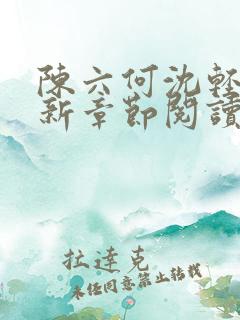 陳六何沈輕
新章節閱讀
拉達克
未經同意禁止轉載